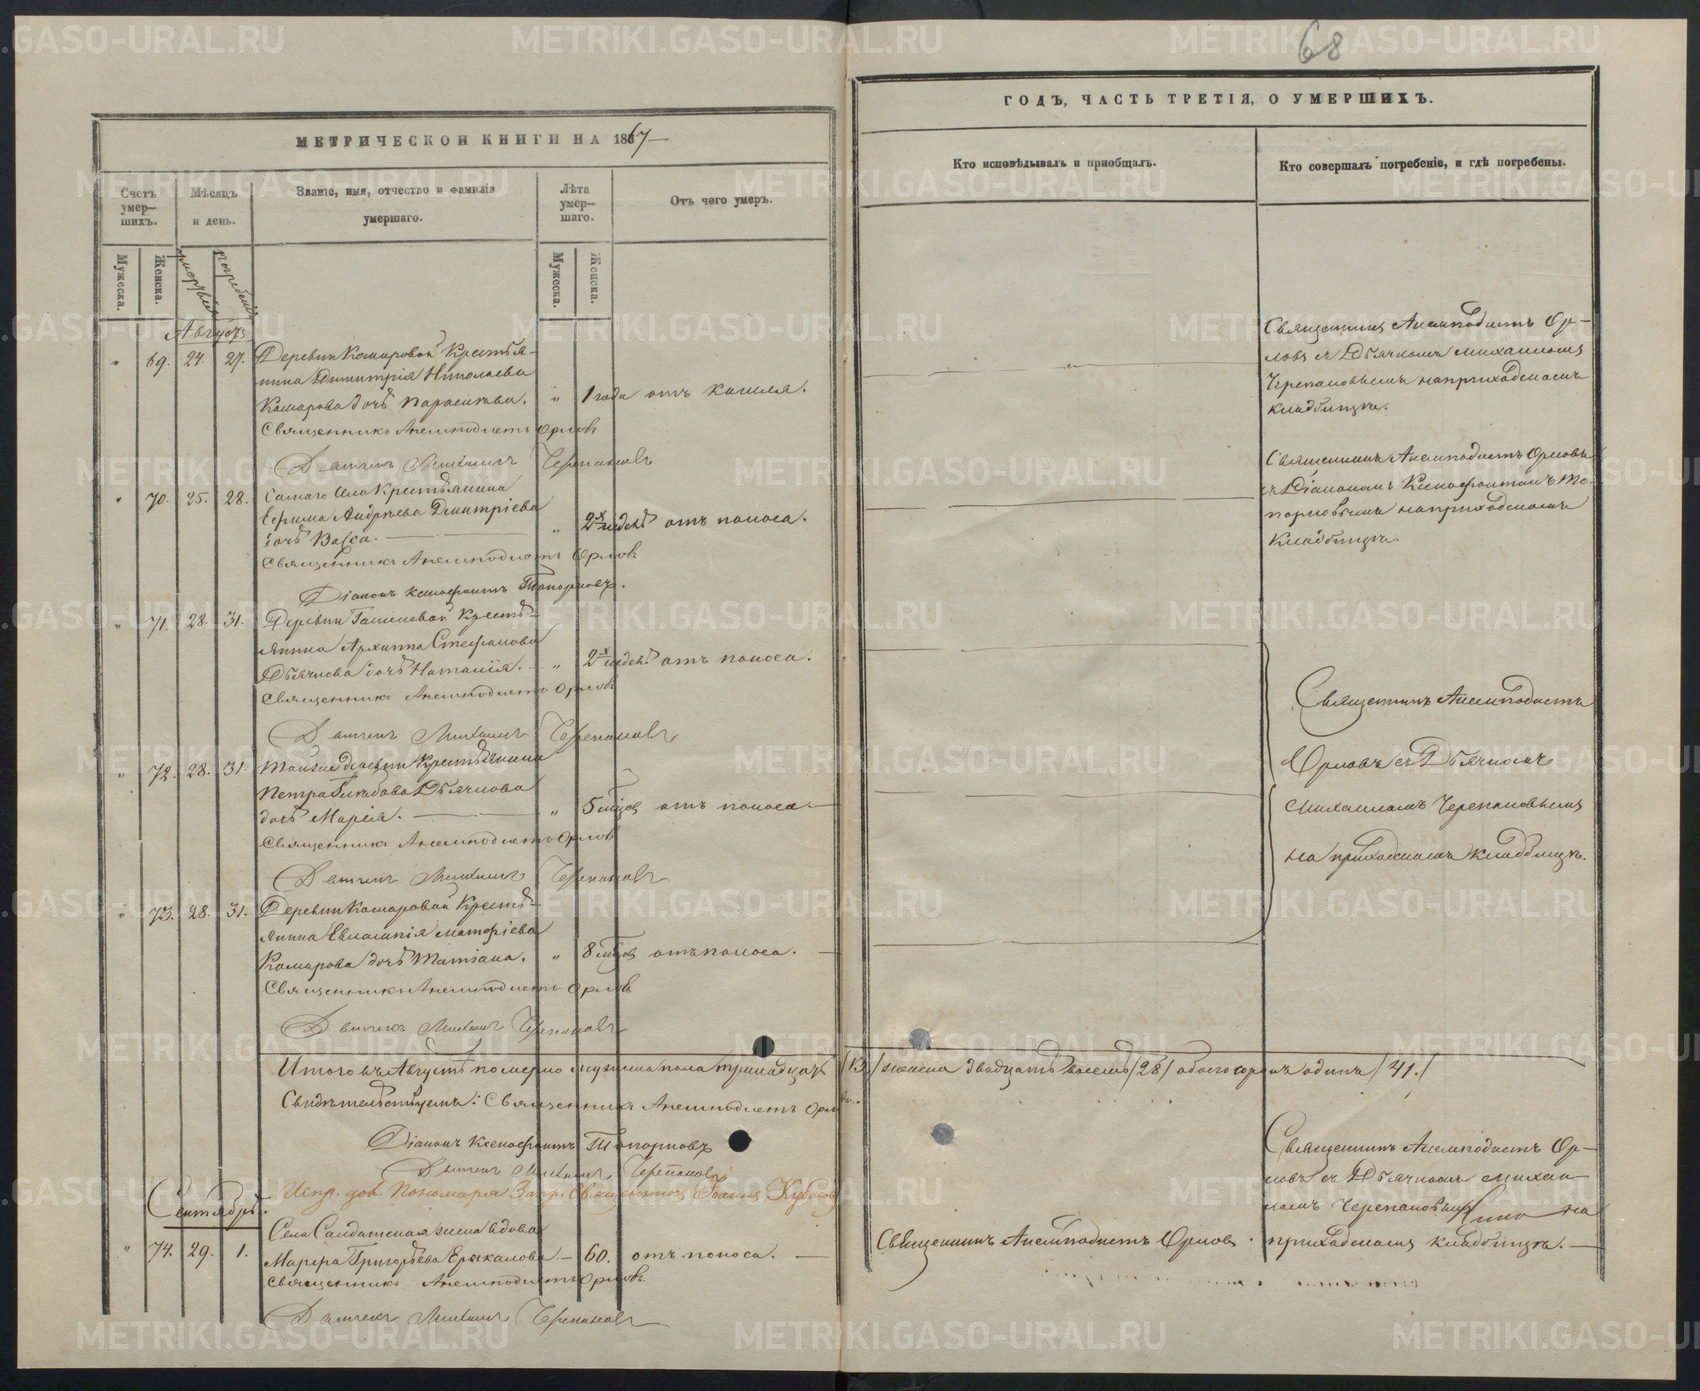 68
МЕТРИЧЕСКОЙ КНИГИ НА 1867
ГОДЪ, ЧАСТЬ ТРЕТІЯ, О УМЕРШИХЪ.
Счетъ умер-шихъ.
Мѣсяцъ и день.
Званіе, имя, отчество и фамилія умершаго.
Лѣта умер-шаго.
Отъ чего умеръ.
Кто исповѣдывалъ и пріобщалъ.
Кто совершалъ погребеніе, и гдѣ погребены.
Мужеска.
Женска.
Мужеска.
Женска.
Августъ
" 69. 24. 27. Деревни Комаровой Крестья-
нина Димитрія Николаева
Комарова дочь Параскева. " 1 года отъ кашля.
Священникъ Анемподистъ Орловъ
Дьячекъ Михаилъ Черепановъ
Священникъ Анемподистъ Ор-
ловъ съ Дьячкомъ Михаиломъ
Черепановымъ на приходскомъ
кладбищѣ.
" 70. 25. 28. Самаго Села Крестьянина
Ефима Андреева Дмитріева
дочь Васса. " 2х недѣль отъ поноса.
Священникъ Анемподистъ Орловъ
Діаконъ Ксенофонтъ Топорковъ.
Священникъ Анемподистъ Орловъ
съ Діакономъ Ксенофонтомъ То-
порковымъ на приходскомъ
Кладбищѣ.
" 71. 28. 31. Деревни Крестья-
янина Архиппа Стефанова
Дьячкова дочь Наталія. " 2х недѣль отъ поноса.
Священникъ Анемподистъ Орловъ
Дьячекъ Михаилъ Черепановъ
" 72. 28. 31. Той же деревни Крестьянина
Петра Глѣбова Дьячкова
дочь Марія. " 5 мѣсяц отъ поноса.
Священникъ Анемподистъ Орловъ
Дьячекъ Михаилъ Черепановъ
Священникъ Анемподистъ
Орловъ съ Дьячкомъ
Михаиломъ Черепановымъ
на приходскомъ кладбищѣ.
" 73. 28. 31. Деревни Комаровой Кресть-
янина Евлампія Матфіева
Комарова дочь Татіана. " 8 мѣсяц отъ поноса.
Священникъ Анемподистъ Орловъ
Дьячекъ Михаилъ Черепановъ
Итого въ Августѣ померло мужеска пола тринадцать /13./ женска двадцать восемь /28/ обоего сорокъ одинъ /41./
Свидѣтельствуемъ: Священникъ Анемподистъ Орловъ.
Діаконъ Ксенофонтъ Топорковъ
Дьячекъ Михаилъ Черепановъ
Испр. дол. Пономаря Священникъ Іоаннъ
Сентябрь.
" 74. 29. 1. Села Солдатская жена вдова
Марфа Григорьева — 60. отъ поноса.
Священникъ Анемподистъ Орловъ
Дьячекъ Михаилъ Черепановъ
Священникъ Анемподистъ Орловъ.
Священникъ Анемподистъ Ор-
ловъ съ Дьячкомъ Михаи-
ломъ Черепановымъ на
приходскомъ кладбищѣ.
METRIKI.GASO-URAL.RU